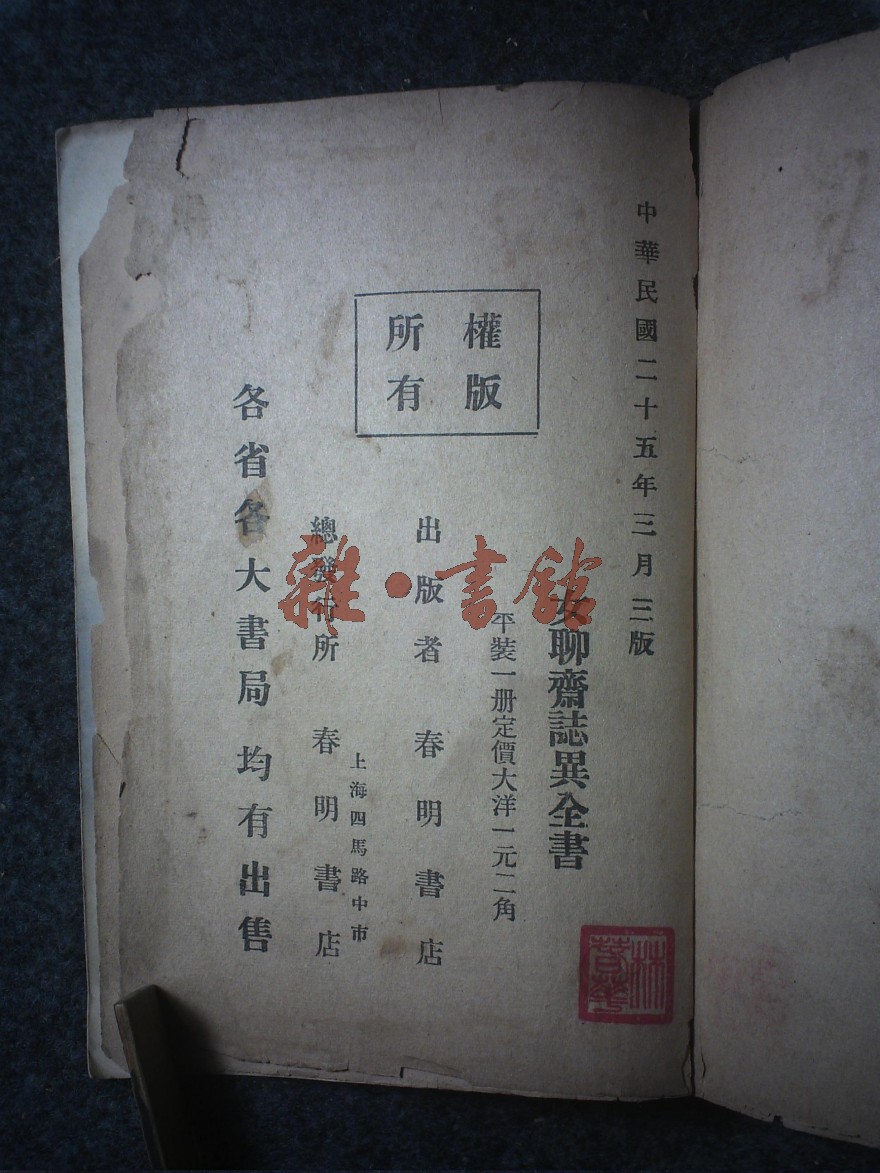 中華民國二十五年三月三版
女聊齋誌異全書
平裝一册定價大洋一元二角
權版
所有
出版者 春明書店
上海四馬路中市
總發行所 春明書店
各省各大書局均有出售
雜·書館